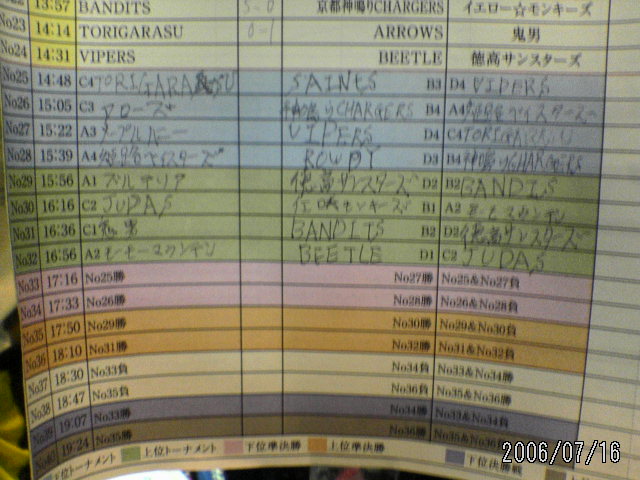 13:57 BANDITS 5-0 京都神鳴りCHARGERS イエロー☆モンキーズ
No23 14:14 TORIGARASU 0-1 ARROWS 鬼男
No24 14:31 VIPERS BEETLE 徳高サンスターズ
No25 14:48 C4 TORIGARASU SAINTS B3 D4 VIPERS
No26 15:05 C3 神鳴りCHARGERS B4 A4
No27 15:22 A3 VIPERS D4 C4 TORIGARASU
No28 15:39 A4 ROWDY D3 B4 神鳴りCHARGERS
No29 15:56 A1 徳高サンスターズ D2 B2 BANDITS
No30 16:16 C2 JUDAS B1 A2
No31 16:36 C1 鬼男 BANDITS B2 D2 徳高サンスターズ
No32 16:56 A2 モーモーマウンテン BEETLE D1 C2 JUDAS
No33 17:16 No25勝 No27勝 No25&No27負
No34 17:33 No26勝 No28勝 No26&No28負
No35 17:50 No29勝 No30勝 No29&No30負
No36 18:10 No31勝 No32勝 No31&No32負
No37 18:30 No33負 No34負 No33&No34勝
No38 18:47 No35負 No36負 No35&No36勝
No39 19:07 No33勝 No34勝 No33&No34負
No40 19:24 No35勝 No36勝 No35&No36負
下位トーナメント 上位トーナメント 下位準決勝 上位準決勝 下位決勝戦
2006/07/16